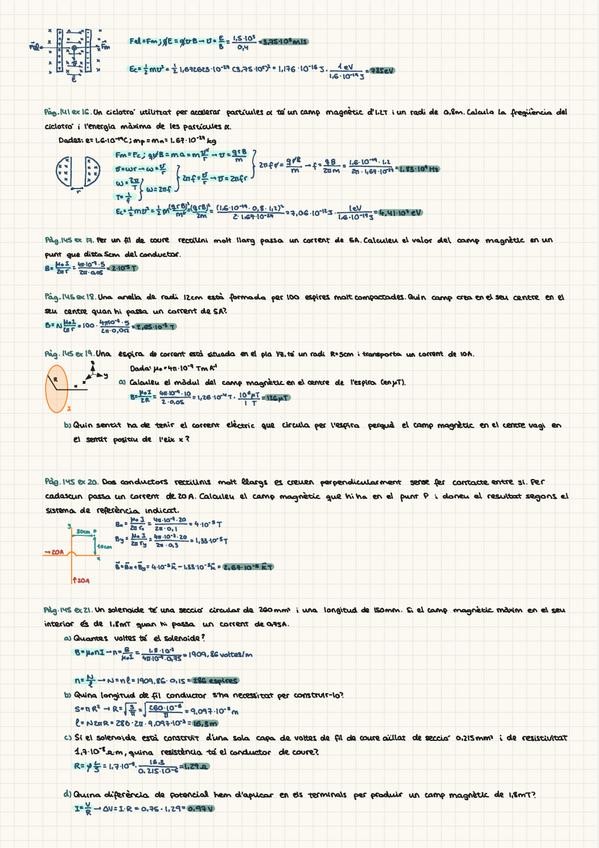 Fel = Fm ; qE = qvB → v = E/B = 1,5·10⁵/0,4 = 3,75·10⁵ m/s
Ec = ½mv² = ½ 1,67262·10⁻²⁷ (3,75·10⁵)² = 1,176·10⁻¹⁶ J · 1eV/1,6·10⁻¹⁹ J = 735eV
Pàg. 141 ex 16. Un ciclotró utilitzat per accelerar partícules α té un camp magnètic d'1,2T i un radi de 0,8m. Calcula la freqüència del
ciclotró i l'energia màxima de les partícules α.
Dades: e = 1,6·10⁻¹⁹C ; mp = mn = 1,67·10⁻²⁷ kg
Fm = Fc ; qvB = ma = m v²/r → v = qrB/m
v = ωr → ω = v/r
ω = 2π/T
T = 1/f
ω = 2πf
2πf = v/r → v = 2πfr
2πfr = qrB/m → f = qB/2πm
Ec = ½mv²
Pàg. 145 ex 17. Per un fil de coure rectilini molt llarg passa un corrent de 5A. Calculeu el valor del camp magnètic en un
punt que dista 5cm del conductor.
B = μ₀I/2πr = 4π·10⁻⁷·5/2π·0,05 = 2·10⁻⁵ T
Pàg. 145 ex 18. Una anella de radi 12cm està formada per 100 espires molt compactades. Quin camp crea en el seu centre en el
seu centre quan hi passa un corrent de 5A?
Pàg. 145 ex 19. Una espira de corrent està situada en el pla YZ, té un radi R=5cm i transporta un corrent de 10A.
Dada: μ₀ = 4π·10⁻⁷ TmA⁻¹
a) Calculeu el mòdul del camp magnètic en el centre de l'espira (en μT).
B = μ₀I/2R = 4π·10⁻⁷·10/2·0,05 = 1,26·10⁻⁴ T · 10⁶μT/1 T = 126μT
b) Quin sentit ha de tenir el corrent elèctric que circula per l'espira perquè el camp magnètic en el centre vagi en
el sentit positiu de l'eix x?
Pàg. 145 ex 20. Dos conductors rectilinis molt llargs es creuen perpendicularment sense fer contacte entre si. Per
cadascun passa un corrent de 20A. Calculeu el camp magnètic que hi ha en el punt P i doneu el resultat segons el
sistema de referència indicat.
30cm P
10cm
→20A
↑20A
Bx = μ₀I/2πrx = 4π·10⁻⁷·20/2π·0,1 = 4·10⁻⁵ T
By = μ₀I/2πry = 4π·10⁻⁷·20/2π·0,3 = 1,33·10⁻⁵ T
Pàg. 145 ex 21. Un solenoide té una secció circular de 260mm² i una longitud de 150mm. Si el camp magnètic màxim en el seu
interior és de 1,8mT quan hi passa un corrent de 0,75A.
a) Quantes voltes té el solenoide?
B = μ₀nI → n = B/μ₀I = 1,8·10⁻³/4π·10⁻⁷·0,75 = 1909,86 voltes/m
n = N/l → N = nl = 1909,86·0,15 = 286 espires
b) Quina longitud de fil conductor s'ha necessitat per construir-lo?
S = πR² → R = √(S/π) = √(260·10⁻⁶/π) = 9,097·10⁻³ m
l = N2πR = 286·2π·9,097·10⁻³ = 16,3m
c) Si el solenoide està construït d'una sola capa de voltes de fil de coure aïllat de secció 0,215mm² i de resistivitat
1,7·10⁻⁸Ωm, quina resistència té el conductor de coure?
R = ρ l/S = 1,7·10⁻⁸ · 16,3/0,215·10⁻⁶ = 1,29Ω
d) Quina diferència de potencial hem d'aplicar en els terminals per produir un camp magnètic de 1,8mT?
I = V/R → ΔV = I·R = 0,75·1,29 = 0,97V